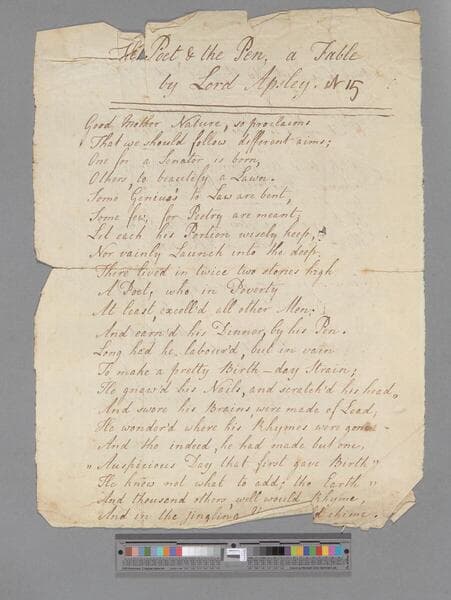 The Poet & the Pen, a Fable
by Lord Apsley. N 15
Good Mother Nature, so proclaims
That we should follow different aims;
One for a Senator is born,
Others, to beautefy a Lawn.
Some Geneus's to Law are bent,
Some few, for Poetry are meant,
Let each his Portion wisely keep,
Nor vainly Launch into the deep.
There lived in twice two stories high
A Poet, who in Poverty
At least, excell'd all other Men;
And earn'd his Dinner, by his Pen.
Long had he labour'd, but in vain
To make a pretty Birth-day Strain;
He gnaw'd his Nails, and scratch'd his head,
And swore his Brains were made of Lead;
He wonder'd where his Rhymes were gone
And tho indeed, he had made but one,
„ Auspicious Day that first gave Birth "
He knew not what to add; the Earth "
And thousand others will would Rhyme,
And in the jingling chime.